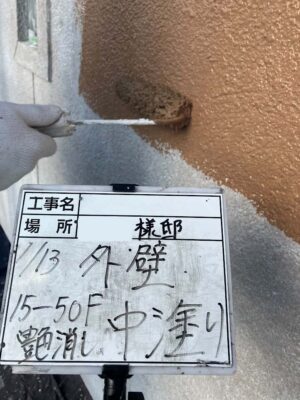 工事名
場所 様邸
1/13 外壁
15-50F
艶消し 中塗り